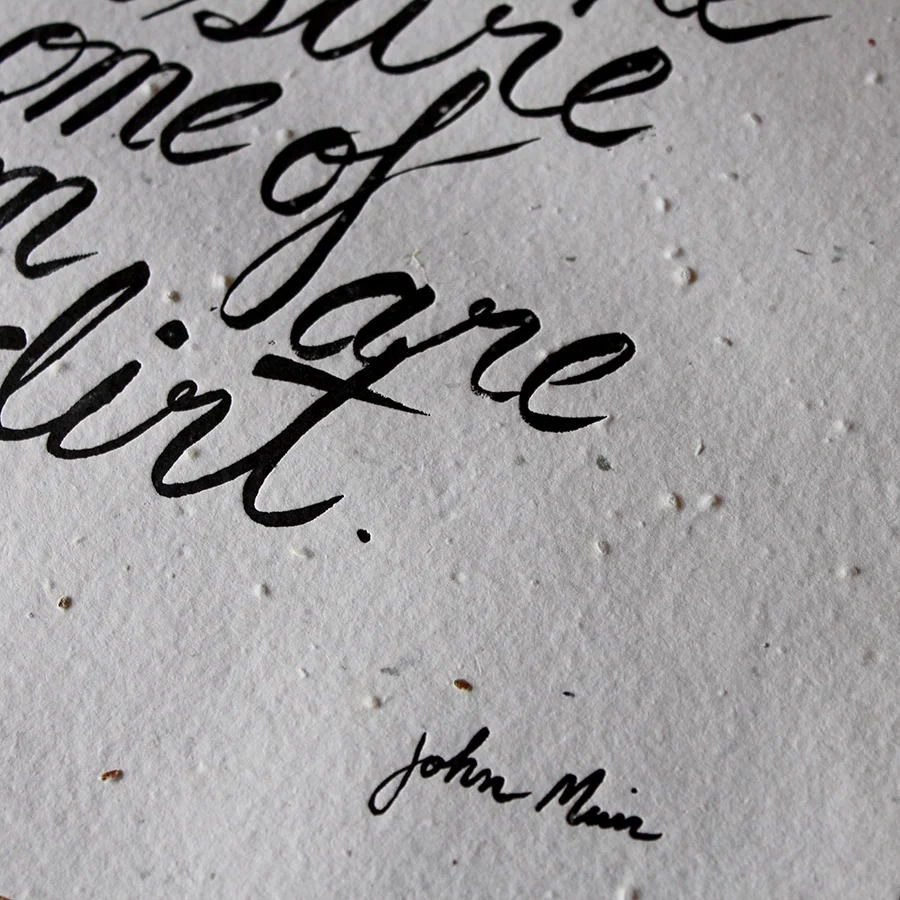 sure
ome of
are
dirt.
John Muir